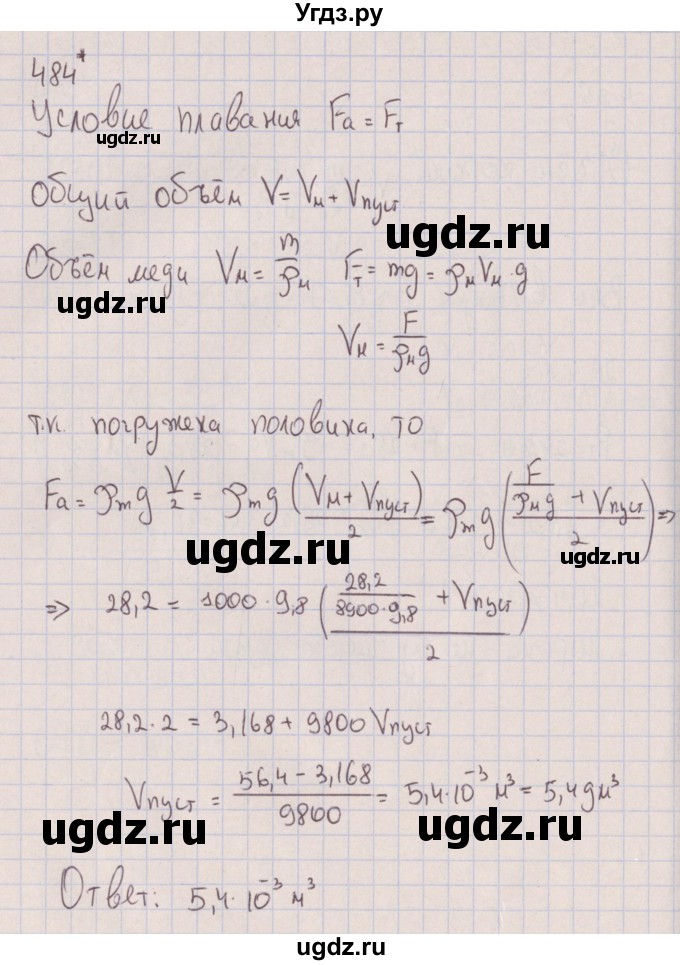 Угдз.ру
484*
Условие плавания Fа = Fт
ugdz.ru
Общий объём V = Vм + Vпуст
ugdz.ru
Объём меди Vм = m/ρм Fт = mg = ρмVм · g
ugdz.ru
Vм = F/ρмg
т.к. погружена половина, то
Fа = ρж g V/2 = ρж g (Vм + Vпуст)/2 = ρж g (F/ρмg + Vпуст)/2 =>
ugdz.ru
ugdz.ru
=> 28,2 = 1000 · 9,8 (28,2/8900·9,8 + Vпуст)/2
28,2 · 2 = 3,168 + 9800 Vпуст
Vпуст = 56,4 - 3,168/9800 = 5,4·10⁻³ м³ = 5,4 дм³
ugdz.ru
ugdz.ru
Ответ: 5,4 · 10⁻³ м³
ugdz.ru
ugdz.ru